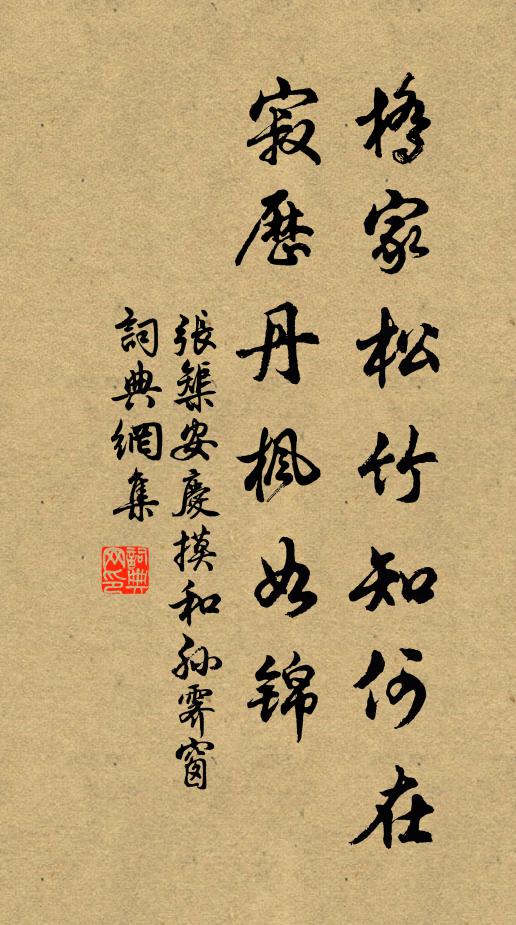 橋家松竹知何在
寂歷丹楓如錦
張榘安慶摸和孫霽窗
詞典網集
詞典
网印